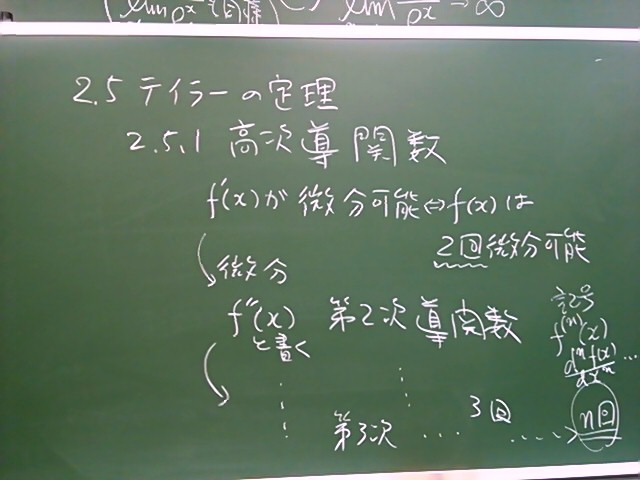 lim
lim → ∞
2.5 テイラーの定理
2.5.1 高次導関数
f'(x)が微分可能⇔f(x)は
2回微分可能
微分
f''(x) 第2次導関数
と書く
記号
f⁽ⁿ⁾(x)
dⁿf(x)/dxⁿ ...
第3次 .... 3回 .....> n回